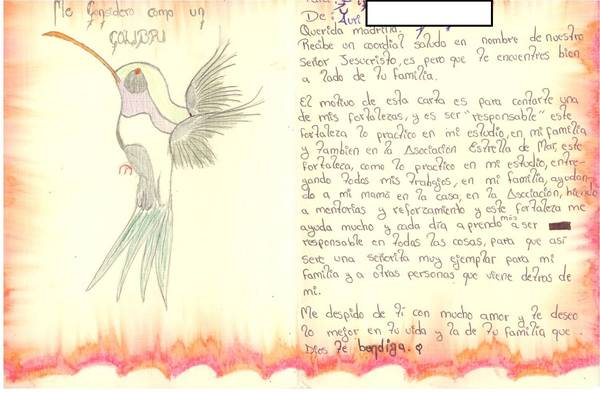 Me Considero como un
COLIBRI
Para:
De:
Querida madrina.
Recibe un coordial saludo en nombre de nuestro
Señor Jesucristo, es pero que te encuentres bien
a lado de tu familia.
El motivo de esta carta es para contarte una
de mis fortalezas, y es ser "responsable" este
fortaleza lo practico en mi estudio, en mi familia
y tambien en la Asociación Estrella de Mar, este
fortaleza, como lo practico en mi estudio, entre-
gando todos mis trabajos, en mi familia, ayudan-
do a mi mamá en la casa, en la Asociación,
a mentorias y reforzamiento y este fortaleza me
ayuda mucho y cada día aprendo más a ser
responsable en todas las cosas, para que así
seré una señorita muy ejemplar para mi
familia y a otras personas que viene detras de
mi.
Me despido de ti con mucho amor y te deseo
lo mejor en tu vida y la de tu familia que..
Dios te bendiga.